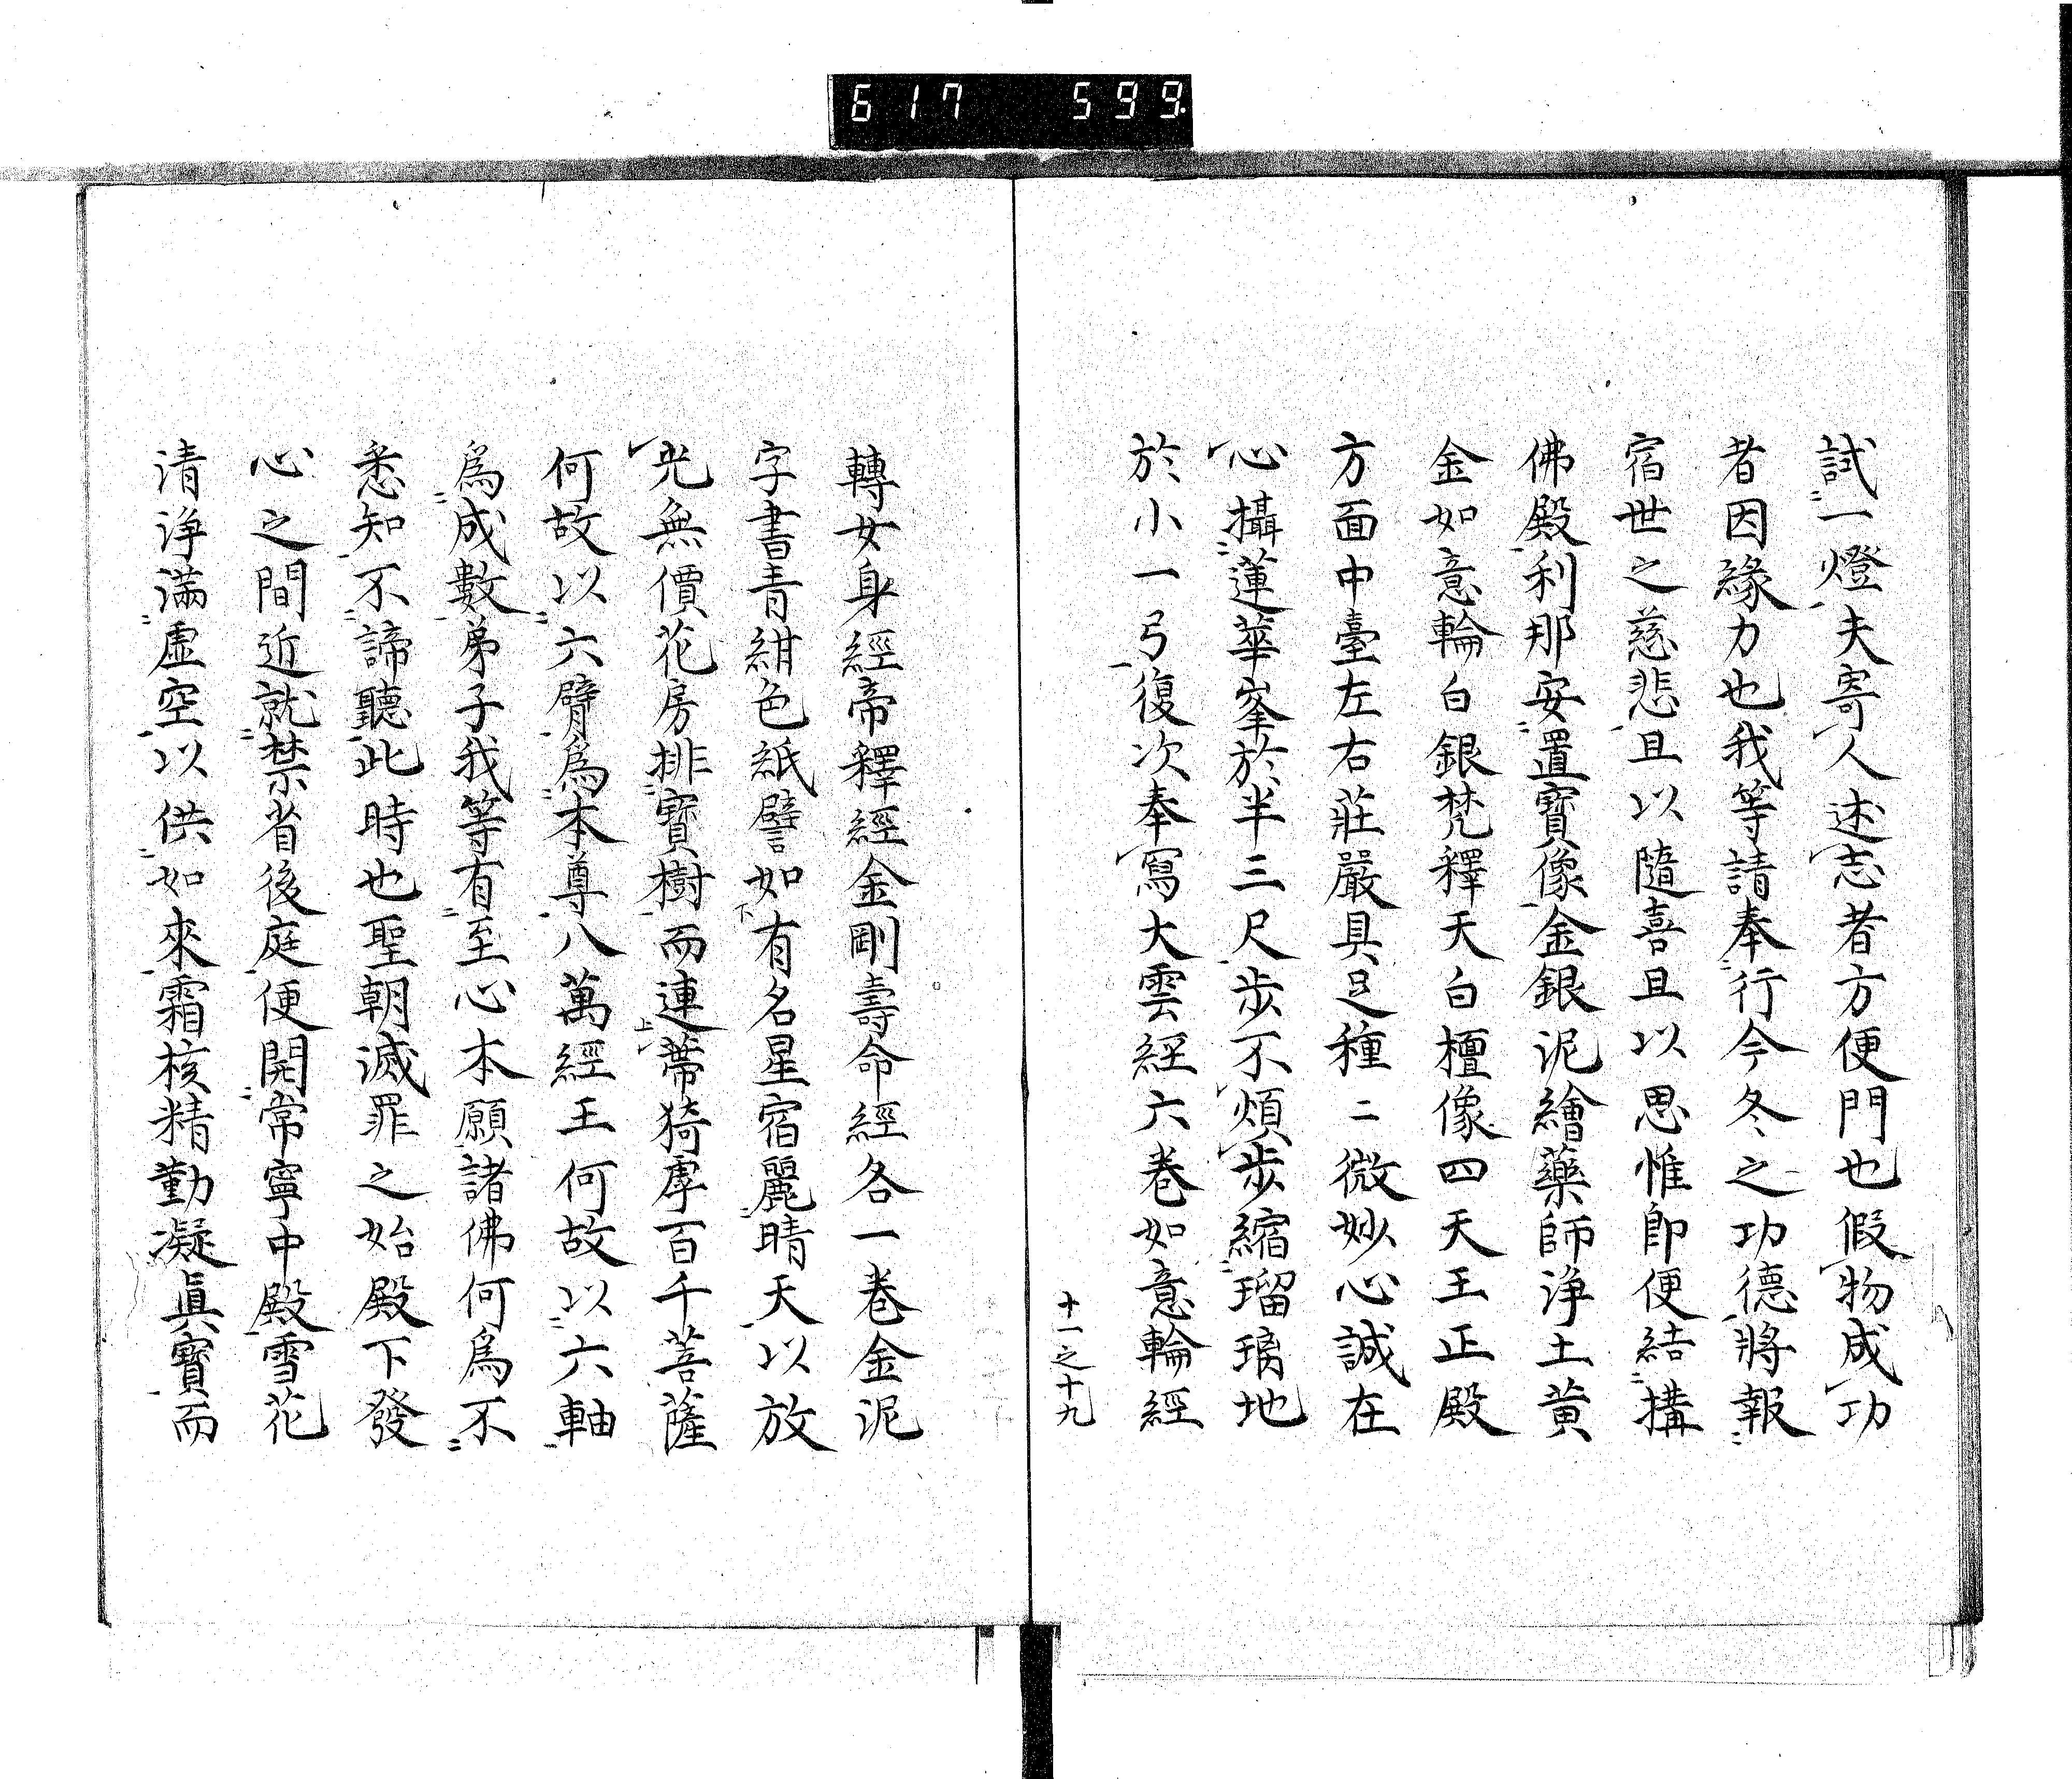 617 599
試一燈夫寄人述志者方便門也假物成功
者因緣力也我等請奉行今冬之功德將報
宿世之慈悲且以隨喜且以思惟卽便結搆
佛殿利那安置寶像金銀泥繪藥師淨土黃
金如意輪白銀梵釋天白檀像四天王正殿
方面中臺左右莊嚴具足種〻微妙心誠在
心攝蓮華峯於半三尺步不煩步縮瑠璃地
於小一弓復次奉寫大雲經六卷如意輪經
十一之十九
轉女身經帝釋經金剛壽命經各一卷金泥
字書青紺色紙譬如有名星宿麗晴天以放
光無價花房排寶樹而連蔕猗虖百千菩薩
何故以六臂爲本尊八萬經王何故以六軸
爲成數弟子我等有至心本願諸佛何爲不
悉知不諦聽此時也聖朝滅罪之始殿下發
心之間近就禁省後庭便開常寧中殿雪花
清淨滿虛空以供如來霜核精勤凝眞寶而